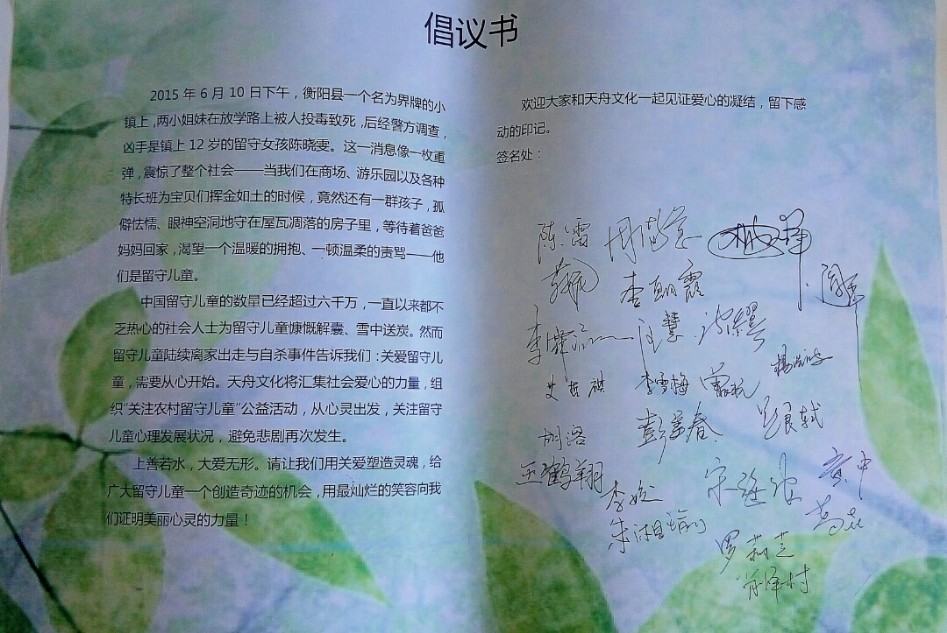 倡议书
2015 年 6 月 10 日下午，衡阳县一个名为界牌的小
镇上，两小姐妹在放学路上被人投毒致死，后经警方调查，
凶手是镇上 12 岁的留守女孩陈晓雯。这一消息像一枚重
弹，震惊了整个社会——当我们在商场、游乐园以及各种
特长班为宝贝们挥金如土的时候，竟然还有一群孩子，孤
僻怯懦、眼神空洞地守在屋瓦凋落的房子里，等待着爸爸
妈妈回家，渴望一个温暖的拥抱、一顿温柔的责骂——他
们是留守儿童。
中国留守儿童的数量已经超过六千万，一直以来都不
乏热心的社会人士为留守儿童慷慨解囊、雪中送炭。然而
留守儿童陆续离家出走与自杀事件告诉我们：关爱留守儿
童，需要从心开始。天舟文化将汇集社会爱心的力量，组
织“关注农村留守儿童”公益活动，从心灵出发，关注留守
儿童心理发展状况，避免悲剧再次发生。
上善若水，大爱无形。请让我们用关爱塑造灵魂，给
广大留守儿童一个创造奇迹的机会，用最灿烂的笑容向我
们证明美丽心灵的力量！
欢迎大家和天舟文化一起见证爱心的凝结，留下感
动的印记。
签名处：
陈雷
李朝霞
李雪梅
胡洛
王鹤翔
罗莉芝